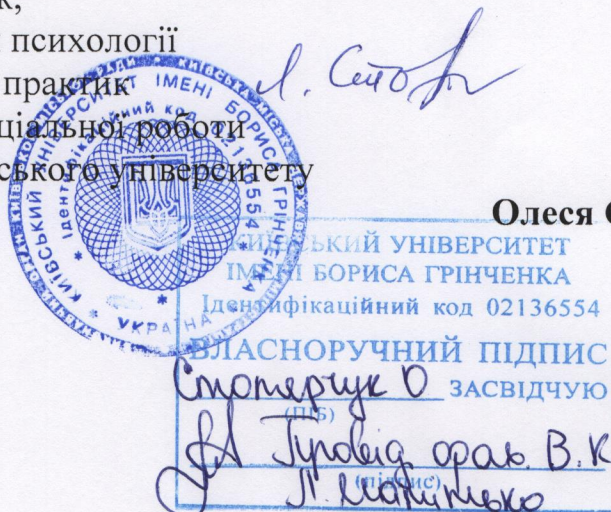 к,
психології
практик
ціальної роботи
ського університету
Олеся
КИЇВСЬКИЙ УНІВЕРСИТЕТ ІМЕНІ БОРИСА ГРІНЧЕНКА
Ідентифікаційний код 02136554
УКРАЇНА
КИЇВСЬКИЙ УНІВЕРСИТЕТ
ІМЕНІ БОРИСА ГРІНЧЕНКА
Ідентифікаційний код 02136554
ВЛАСНОРУЧНИЙ ПІДПИС
Столярчук О ЗАСВІДЧУЮ
(ПІБ)
В.К
(підпис)